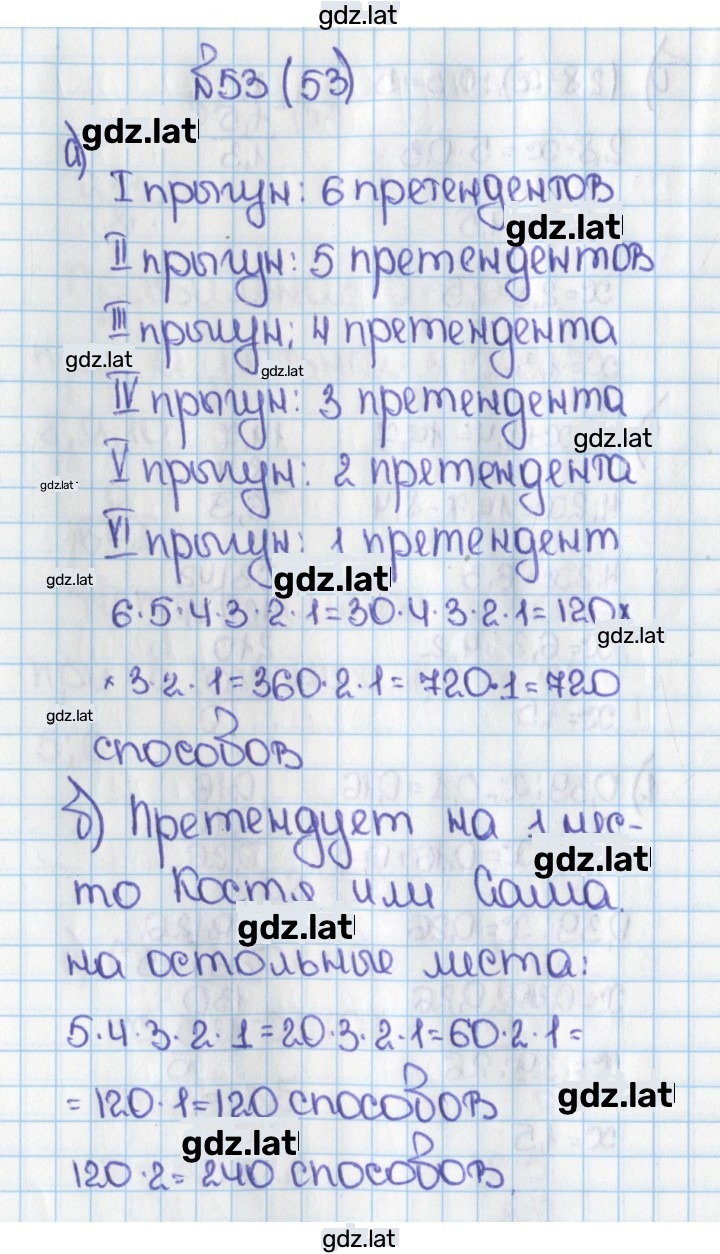 gdz.lat
№53 (53)
а) gdz.lat
I прыгун: 6 претендентов
gdz.lat
II прыгун: 5 претендентов
III прыгун: 4 претендента
gdz.lat
gdz.lat
IV прыгун: 3 претендента
gdz.lat
V прыгун: 2 претендента
gdz.lat
VI прыгун: 1 претендент
gdz.lat
gdz.lat
6·5·4·3·2·1=30·4·3·2·1=120×
gdz.lat
×3·2·1=360·2·1=720·1=720
gdz.lat
способов
б) Претендует на 1 мес-
gdz.lat
то Костя или Саша.
gdz.lat
на остольные места:
5·4·3·2·1=20·3·2·1=60·2·1=
=120·1=120 способов
gdz.lat
gdz.lat
120·2=240 способов.
gdz.lat